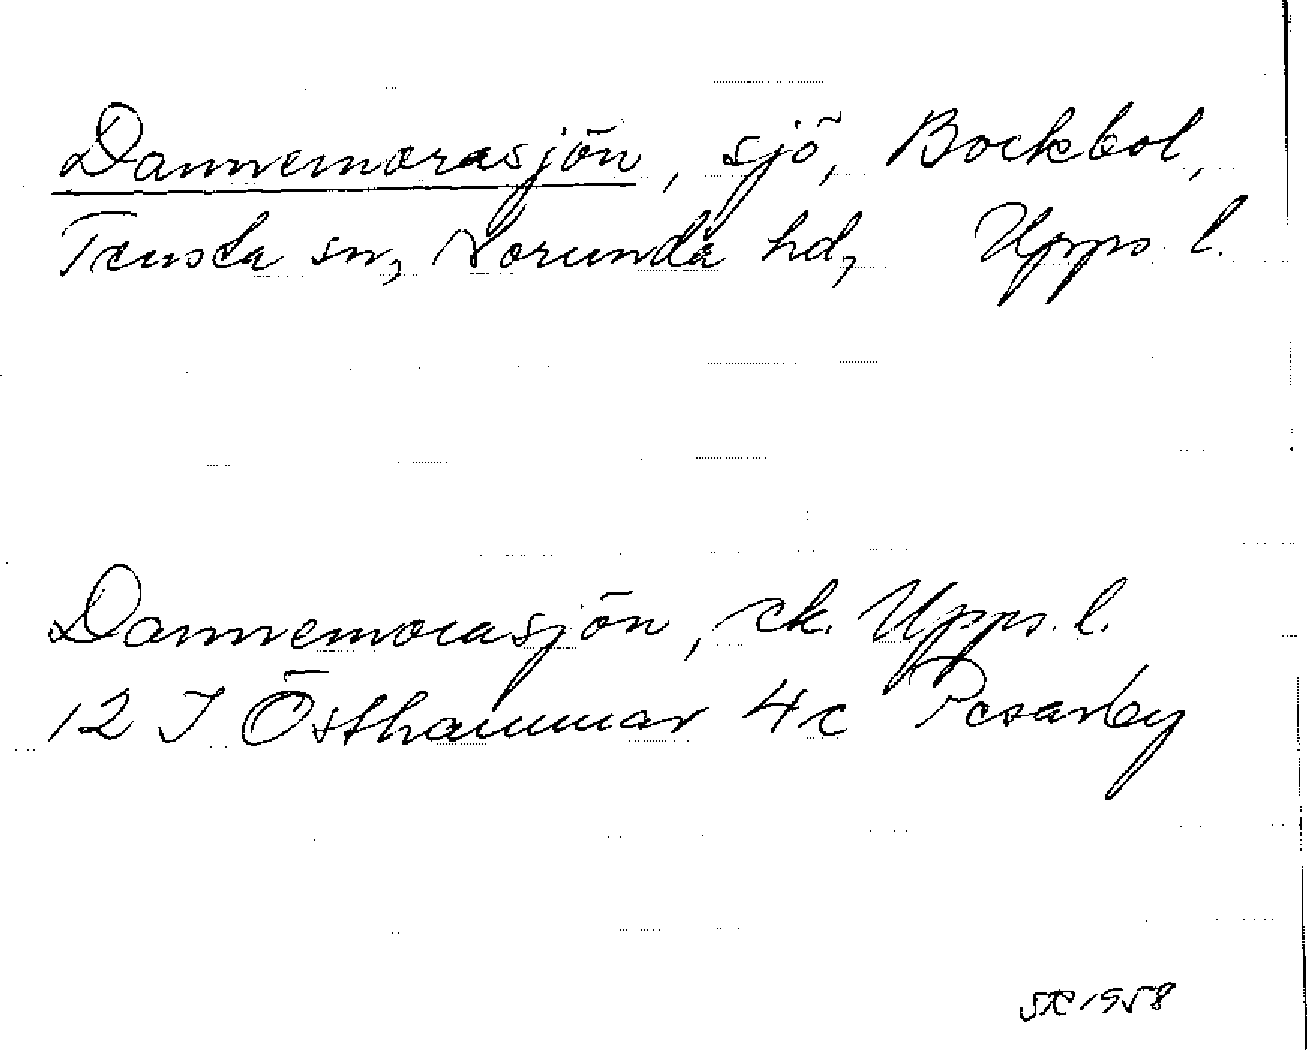 Dannemorasjön, sjö, Bockbol,
Tensta sn, Norunda hd, Upps. l.
Dannemorasjön, ek. Upps. l.
12 I Östhammar 4c
1958